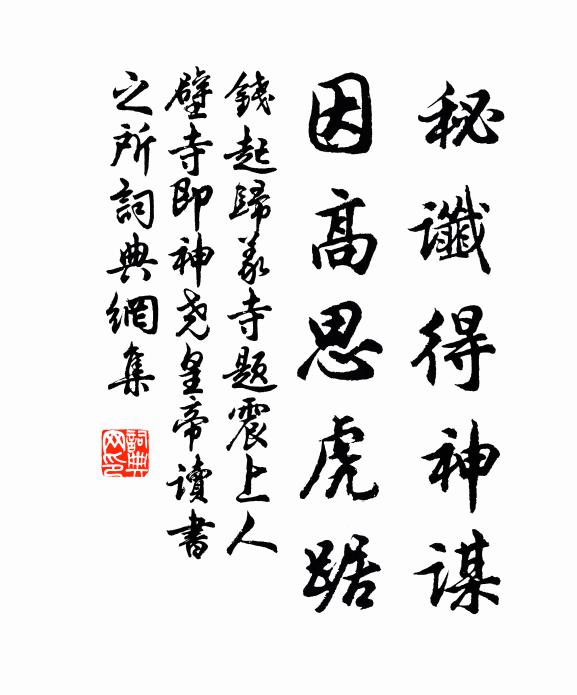 秘讖得神謀
因高思虎踞
錢起歸義寺題震上人
壁寺即神堯皇帝讀書
之所詞典網集
詞典網印